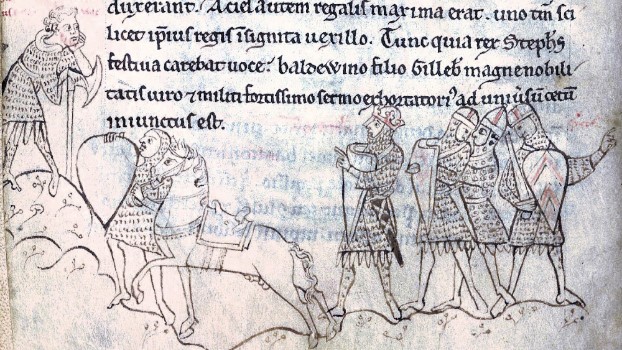 duxerant. Acies autem regalis maxima erat. uno tm̄ sci
licet ip̄ius regis īsignita uexillo. Tunc quia rex Stephs̄
festiua carebat uoce. baldewino filio Gilleb̄ magne nobili
tatis uiro ⁊ militi fortissimo sermo exhortatori᷒ ad uniu̓sū cetū
iniunctus est.